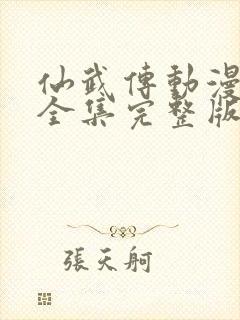 仙武傳動漫
全集完整版
張天舸